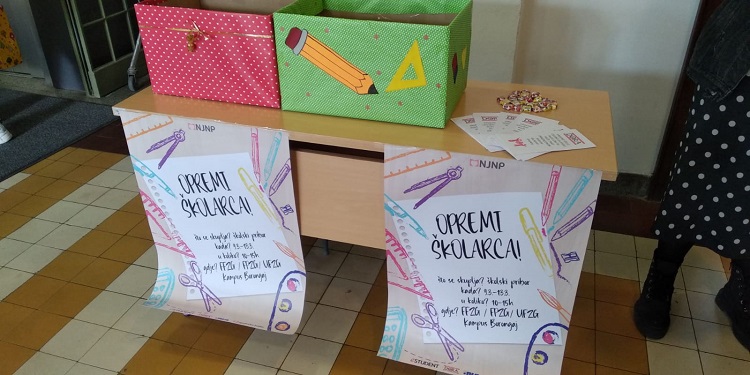 NJNP
OPREMI
ŠKOLARCA!
što se skuplja? školski pribor
kada? 9.3-13.3.
u koliko? 10-15h
gdje? FFZG / FPZG / UFZG
Kampus Borongaj
NJNP
OPREMI
ŠKOLARCA!
što se skuplja? školski pribor
kada? 9.3-13.3.
u koliko? 10-15h
gdje? FFZG / FPZG / UFZG
Kampus Borongaj